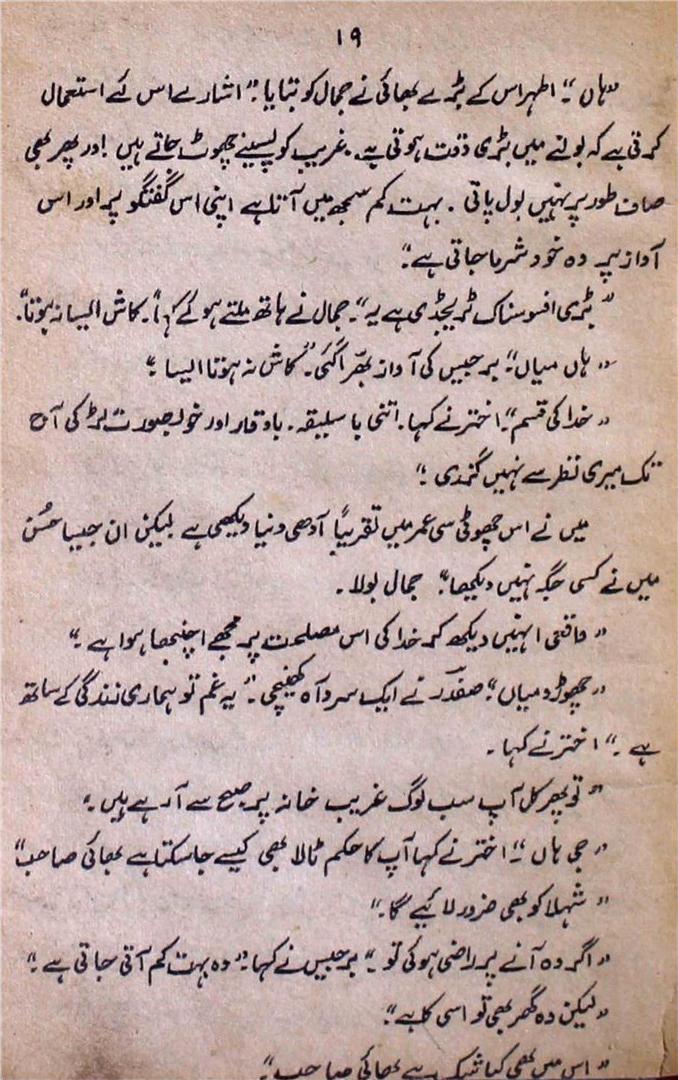 ۱۹
"ہاں"۔ اطہر اس کے بڑے بھائی نے جمال کو بتایا۔" اشارے اس لئے استعمال
کرتی ہے کہ بولنے میں بڑی دقت ہوتی ہے۔ غریب کو پسینے چھوٹ جاتے ہیں اور پھر بھی
صاف طور پر نہیں بول پاتی۔ بہت کم سمجھ میں آتا ہے اپنی اس گفتگو پر اور اس
آواز پر وہ خود شرما جاتی ہے"
"بڑی افسوسناک ٹریجڈی ہے یہ"۔ جمال نے ہاتھ ملتے ہوئے کہا"۔ کاش ایسا نہ ہوتا"۔
"ہاں میاں"۔ برجیس کی آواز بھرّا گئی۔" کاش نہ ہوتا ایسا"
"خدا کی قسم"۔ اختر نے کہا۔ اتنی با سلیقہ۔ باوقار اور خوبصورت لڑکی آج
تک میری نظر سے نہیں گزری"
میں نے اس چھوٹی سی عمر میں تقریباً آدھی دنیا دیکھی ہے لیکن ان جیسا حُسن
میں نے کسی جگہ نہیں دیکھا"۔ جمال بولا۔
"واقعی انہیں دیکھ کر خدا کی اس مصلحت پر مجھے اچنبھا ہوا ہے۔"
"چھوڑو میاں"۔ صفدر نے ایک سرد آہ کھینچی۔" یہ غم تو ہماری زندگی کے ساتھ
ہے۔" اختر نے کہا۔
"تو پھر کل آپ سب لوگ غریب خانہ پر صبح سے آ رہے ہیں۔"
"جی ہاں"۔ اختر نے کہا آپ کا حکم ٹالا بھی کیسے جا سکتا ہے بھائی صاحب"
"شہلا کو بھی ضرور لائیے گا۔"
"اگر وہ آنے پر راضی ہوئی تو"۔ برجیس نے کہا۔" وہ بہت کم آتی جاتی ہے۔"
"لیکن وہ گھر بھی تو اسی کا ہے"۔
"اس میں بھی کیا شک ہے بھائی صاحب"۔